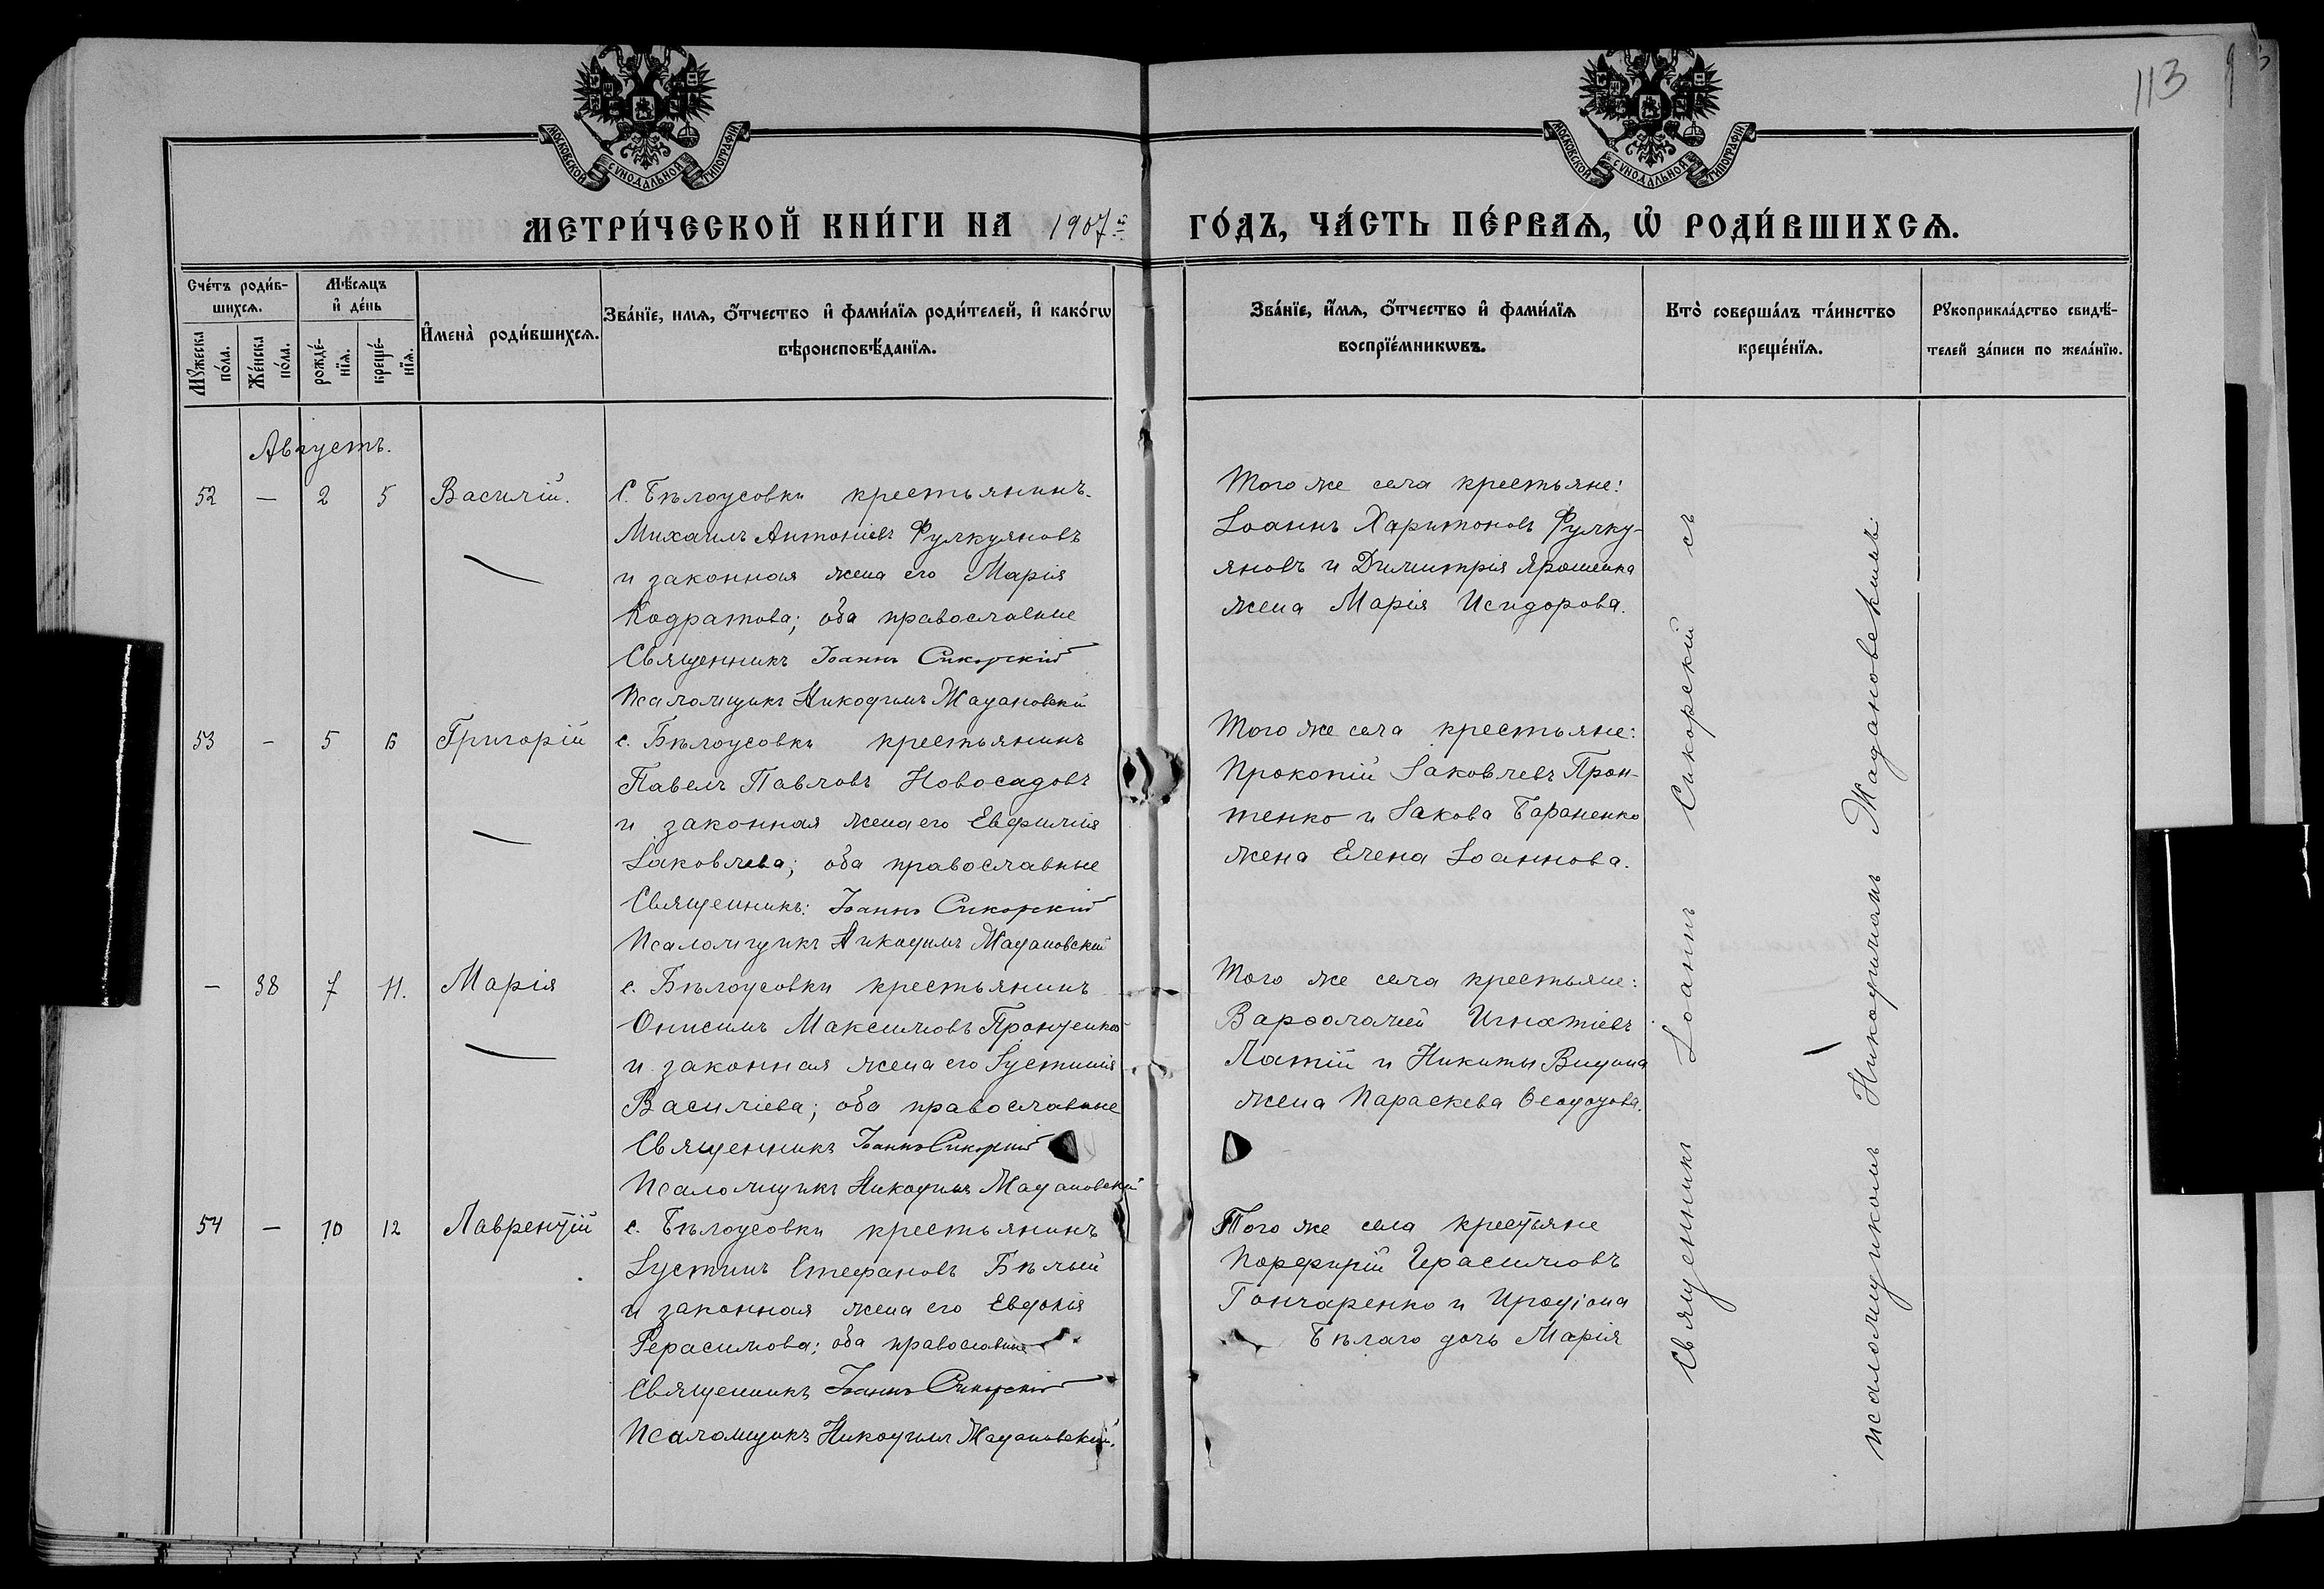 113
МОСКОВСКОЙ СѴНОДАЛЬНОЙ ТИПОГРАФІИ
МОСКОВСКОЙ СѴНОДАЛЬНОЙ ТИПОГРАФІИ
МЕТРИ́ЧЕСКОЙ КНИ́ГИ НА 1907й ГО́ДЪ, ЧА́СТЬ ПЕ́РВАѦ, Ѡ҆ РОДИ́ВШИХСѦ.
Сче́тъ роди́в-
шихсѧ.
Мꙋжеска по́ла.
Же́нска по́ла.
Мѣ́сѧцъ
и҆ де́нь
рожде́-
нїѧ.
креще́-
нїѧ.
И҆мена̀ роди́вшихсѧ.
Зва́нїе, имѧ, ѻ҆́тчество и҆ фами́лїѧ роди́телей, и҆ како́гѡ
вѣроисповѣ́данїѧ.
Зва́нїе, и҆́мѧ, ѻ҆́тчество и҆ фами́лїѧ
воспрїе́мникѡвъ.
Кто̀ соверша́лъ та́инство
креще́нїѧ.
Рꙋкоприкла́дство свидѣ́-
телей за́писи по жела́нїю.
Августъ.
52 — 2 5 Василій.
С. Бѣлоусовки крестьянинъ
Михаилъ Антоніевъ Фулкуяновъ
и законная жена его Марія
Кодратова; оба православные
Священникъ Іоаннъ Сикорскій
Псаломщикъ Никодимъ Жадановскій
Того же села крестьяне:
Іоаннъ Харитоновъ Фулку-
яновъ и Димитрія Ярошенка
жена Марія Исидорова.
53 — 5 6 Григорій
с. Бѣлоусовки крестьянинъ
Павелъ Павловъ Новосадовъ
и законная жена его Евфимія
Іаковлева; оба православные
Священникъ: Іоаннъ Сикорскій
Псаломщикъ Никодимъ Жадановскій
Того же села крестьяне:
Прокопій Іаковлевъ Прон-
тенко и Іакова Бараненко
жена Елена Іоаннова.
— 38 7 11. Марія
с. Бѣлоусовки крестьянинъ
Онисимъ Максимовъ Пронтенко
и законная жена его Іустинія
Василіева; оба православные
Священникъ Іоаннъ Сикорскій
Псаломщикъ Никодимъ Жадановскій
Того же села крестьяне:
Варѳоломей Игнатіевъ
Латій и Никиты
жена Параскева Ѳеодорова.
54 — 10 12 Лаврентій
с. Бѣлоусовки крестьянинъ
Іустинъ Стефановъ Бѣлый
и законная жена его Евдокія
Герасимова; оба православные
Священникъ Іоаннъ Сикорскій
Псаломщикъ Никодимъ Жадановскій.
Того же села крестьяне
Порфирій Герасимовъ
Гончаренко и Иродіона
Бѣлаго дочь Марія
Священникъ Іоаннъ Сикорскій съ
псаломщикомъ Никодимомъ Жадановскимъ.